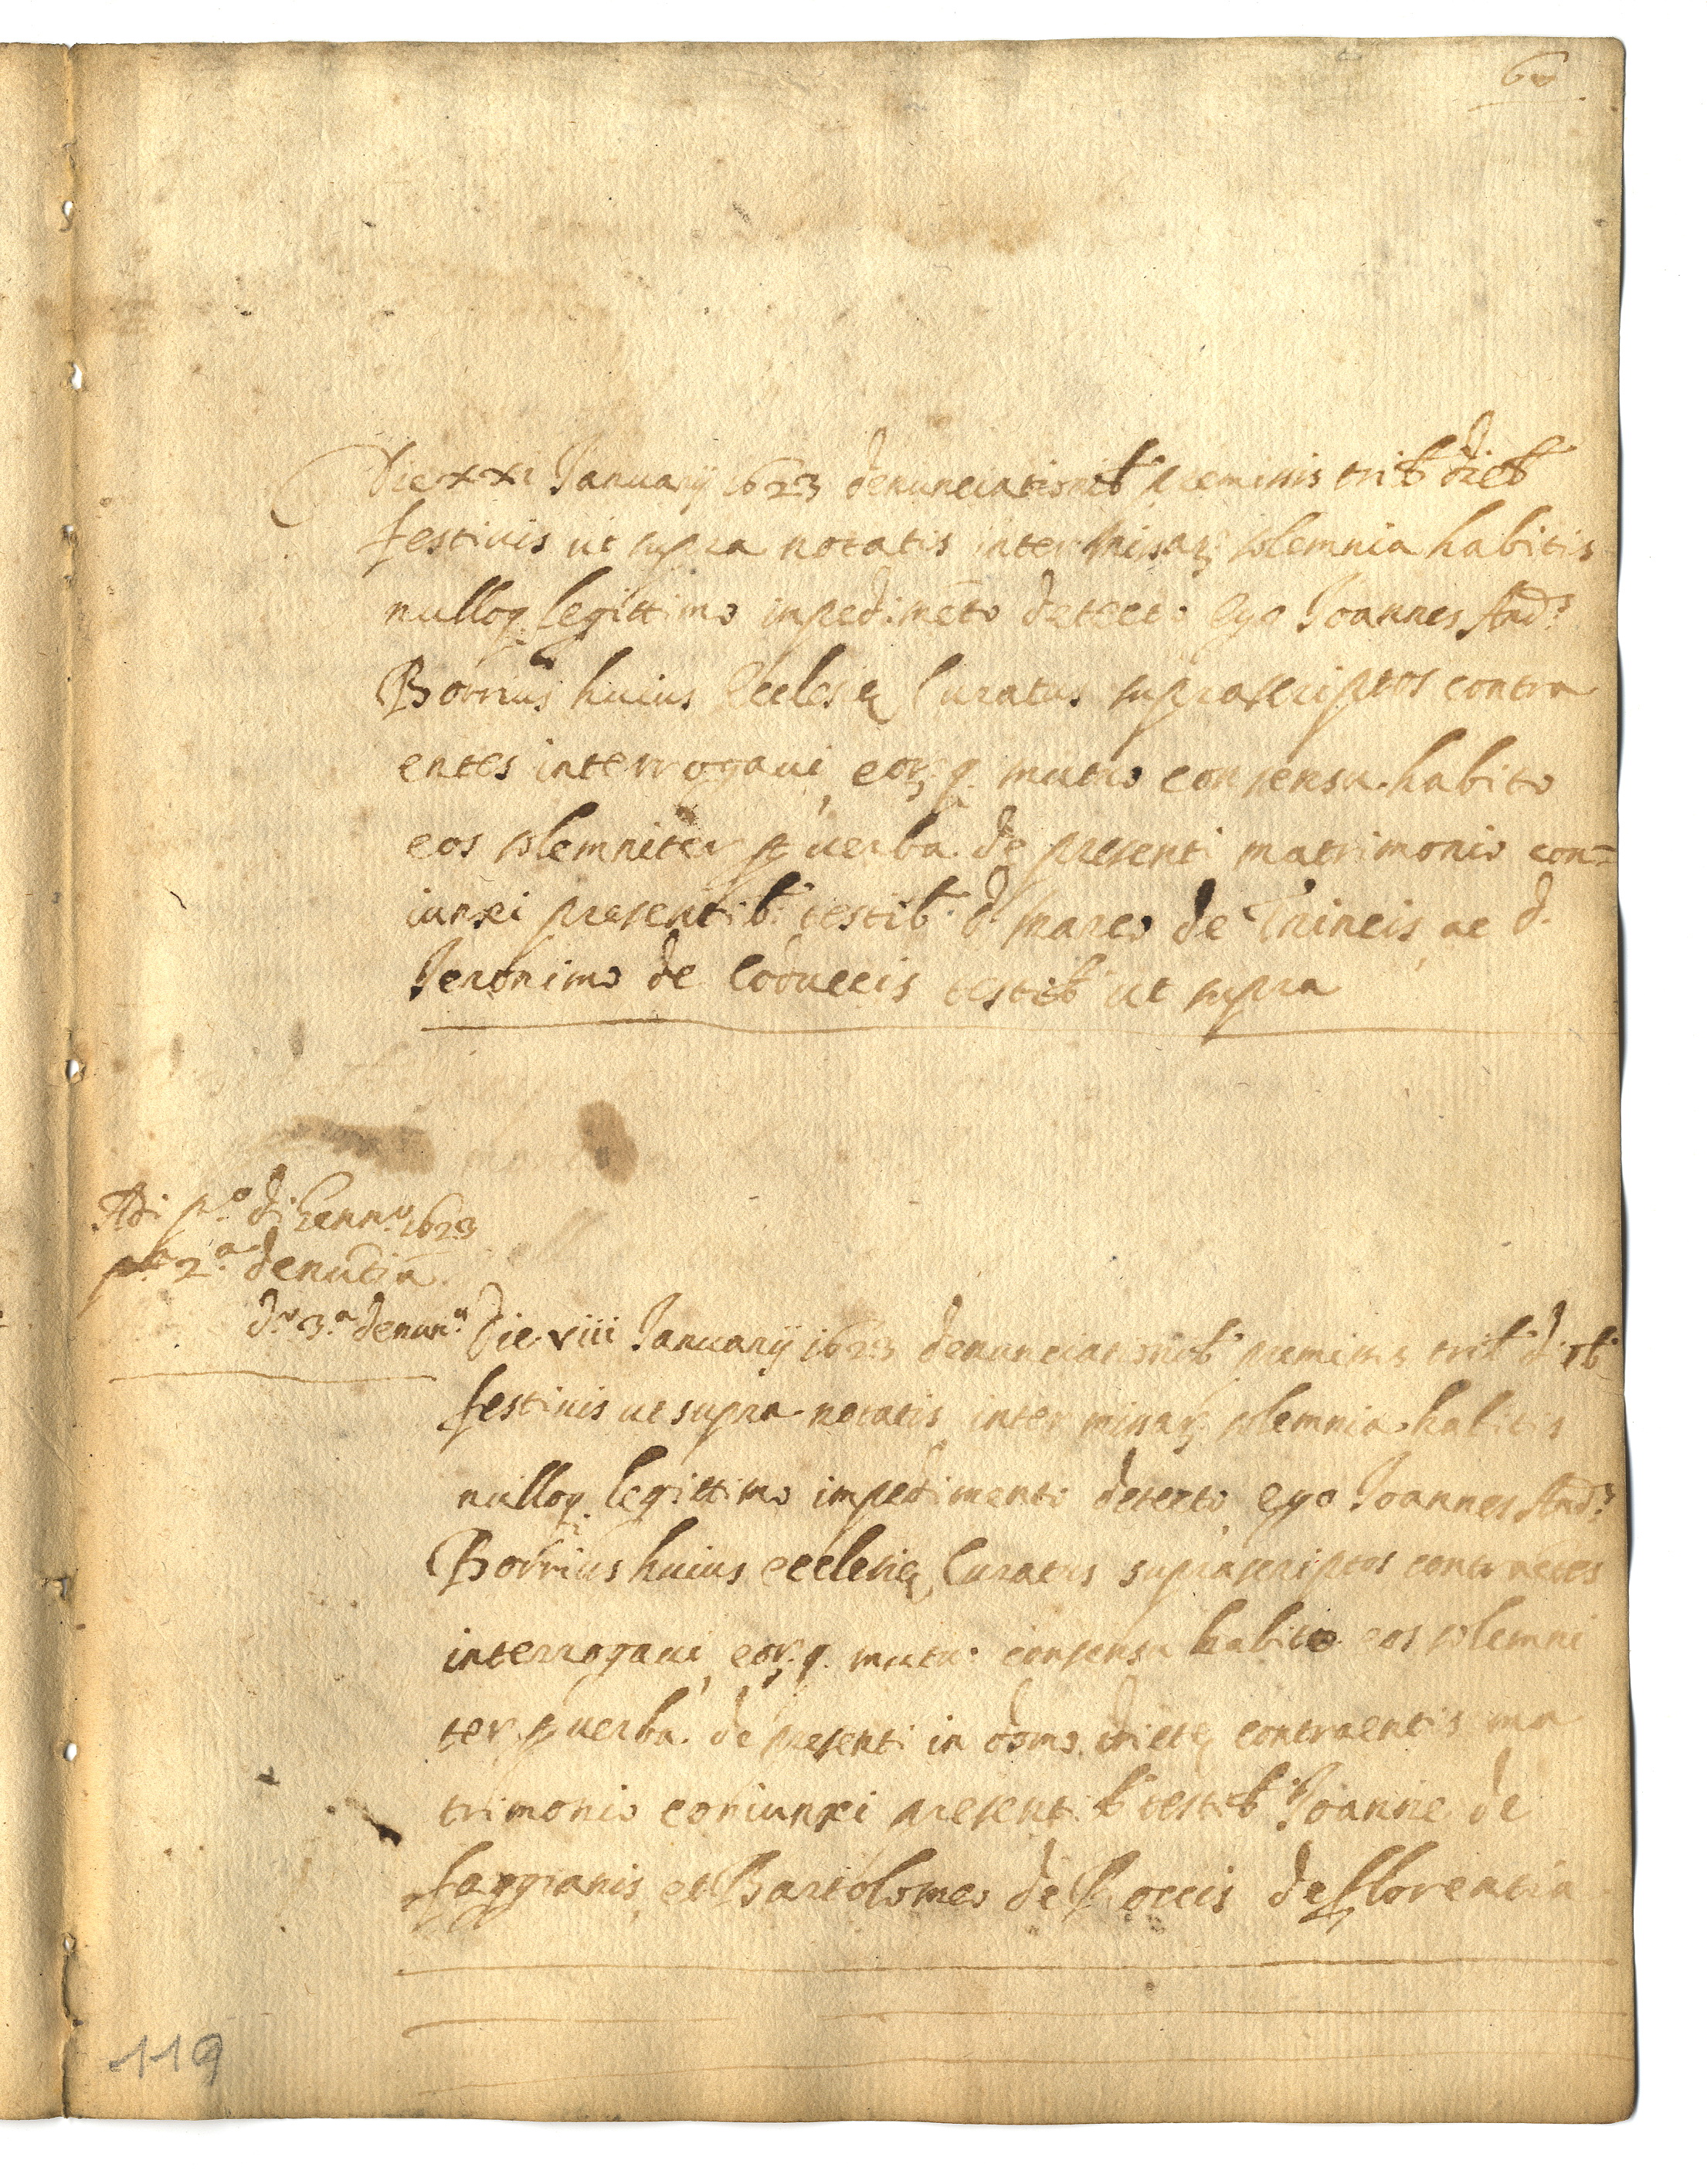 60
Die xxi Januarij 1623 denunciationib. premissis trib. dieb.
festiuis ut supra notatis inter missarz solemnia habitis
nulloq. legittimo inpedimēto detecto ego Joannes And.
Borrius huius Ecclesię Curatus suprascriptos contra
entes interrogaui, eorz q. mutuo consensu habito
eos solemniter p uerba de presenti matrimonio con=
iunxi presentib. testib. d. Marco de ac d.
Jeronimo de Coduccis testib. ut supra
Adi p.o di Genn.o 1623
2.a denūtia
d.o 3.a denun.a Die viii Januarij 1623 denunciationib. premissis trib. dieb.
festiuis ut supra notatis inter missarz solemnia habitis
nulloq. legittimo impedimento detecto ego Joannes And.
Borrius huius ecclesię Curatus suprascriptos contraētes
interrogaui, eorz q. mutuo consensu habito eos solemni
ter p uerba de presenti in domo dictę contraentis ma
trimonio coniunxi present.b testib. Joanne de
faggianis et Bartolomeo de Roccis de florentia
119